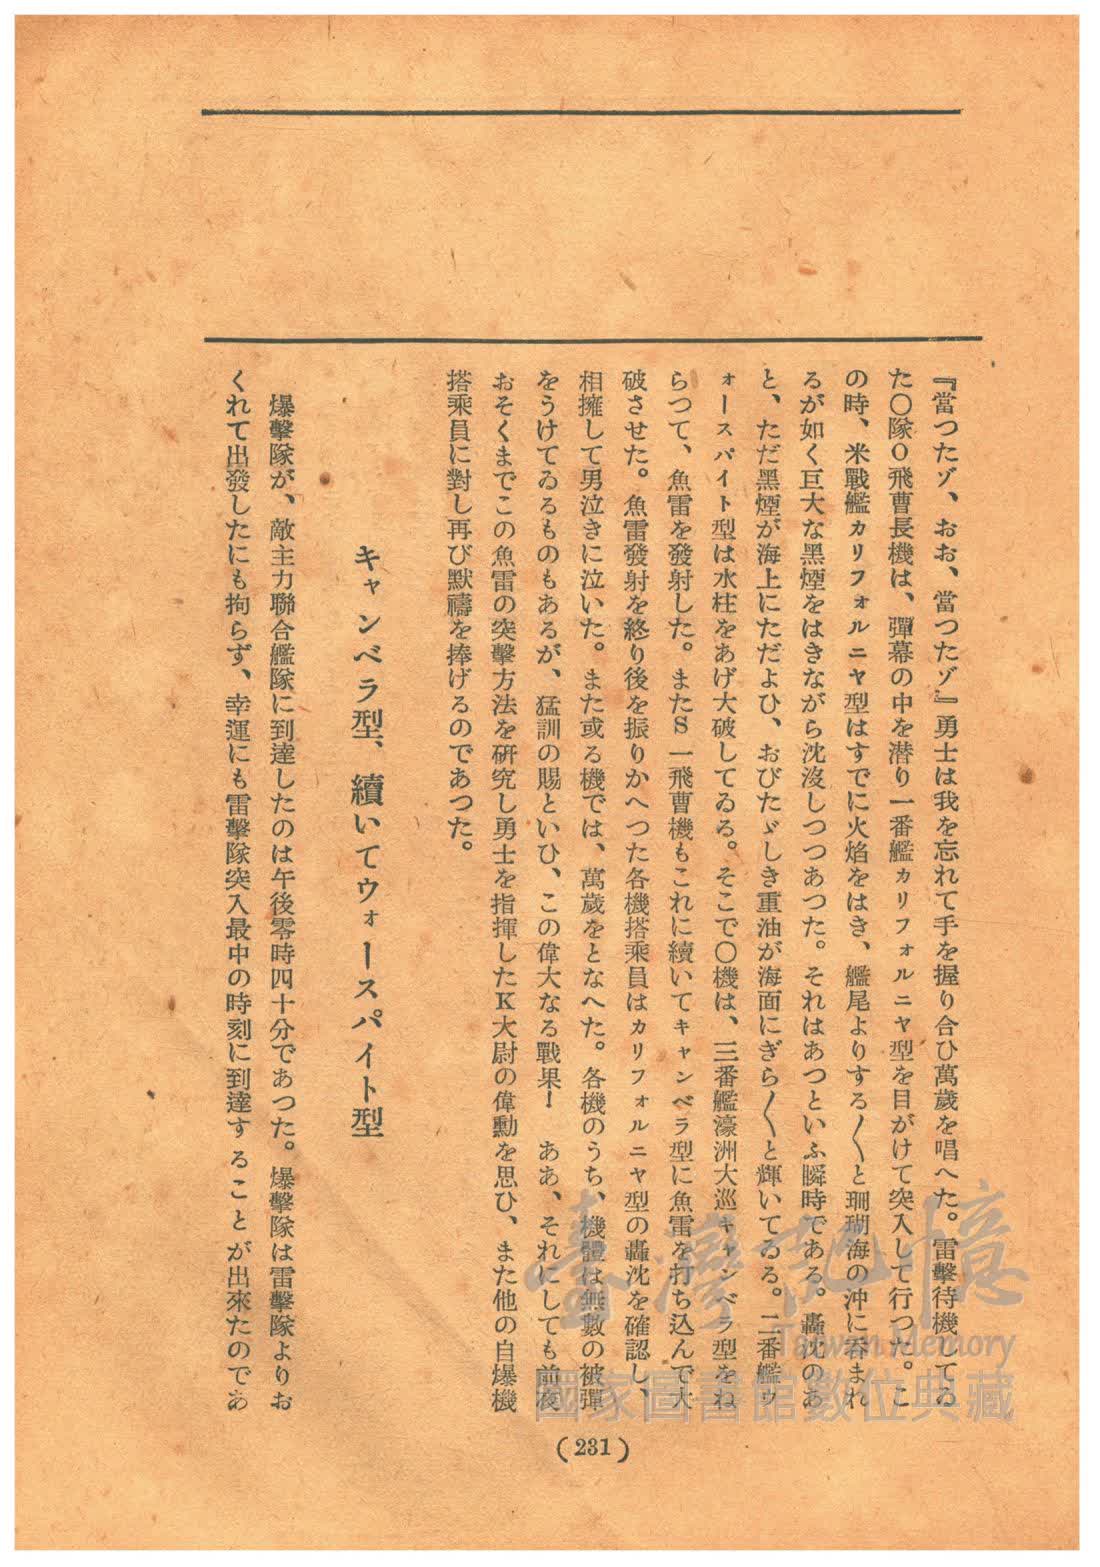 『當つたゾ、おお、當つたゾ』勇士は我を忘れて手を握り合ひ萬歲を唱へた。雷擊待機してゐ
た〇隊O飛曹長機は、彈幕の中を潜り一番艦カリフォルニヤ型を目がけて突入して行つた。こ
の時、米戰艦カリフォルニヤ型はすでに火焰をはき、艦尾よりする〱と珊瑚海の沖に吞まれ
るが如く巨大な黑煙をはきながら沈沒しつつあつた。それはあつといふ瞬時である。轟沈のあ
と、ただ黑煙が海上にただよひ、おびたゞしき重油が海面にぎら〱と輝いてゐる。二番艦ウ
ォースパイト型は水柱をあげ大破してゐる。そこで〇機は、三番艦濠洲大巡キャンベラ型をね
らつて、魚雷を發射した。またS一飛曹機もこれに續いてキャンベラ型に魚雷を打ち込んで大
破させた。魚雷發射を終り後を振りかへつた各機搭乘員はカリフォルニヤ型の轟沈を確認し、
相擁して男泣きに泣いた。また或る機では、萬歲をとなへた。各機のうち、機體は無數の被彈
をうけてゐるものもあるが、猛訓の賜といひ、この偉大なる戰果！　ああ、それにしても前夜
おそくまでこの魚雷の突擊方法を硏究し勇士を指揮したK大尉の偉勳を思ひ、また他の自爆機
搭乘員に對し再び默禱を捧げるのであつた。
キャンベラ型、續いてウォースパイト型
爆擊隊が、敵主力聯合艦隊に到達したのは午後零時四十分であつた。爆擊隊は雷擊隊よりお
くれて出發したにも拘らず、幸運にも雷擊隊突入最中の時刻に到達することが出來たのであ
(231)
臺灣記憶
Taiwan Memory
國家圖書館數位典藏